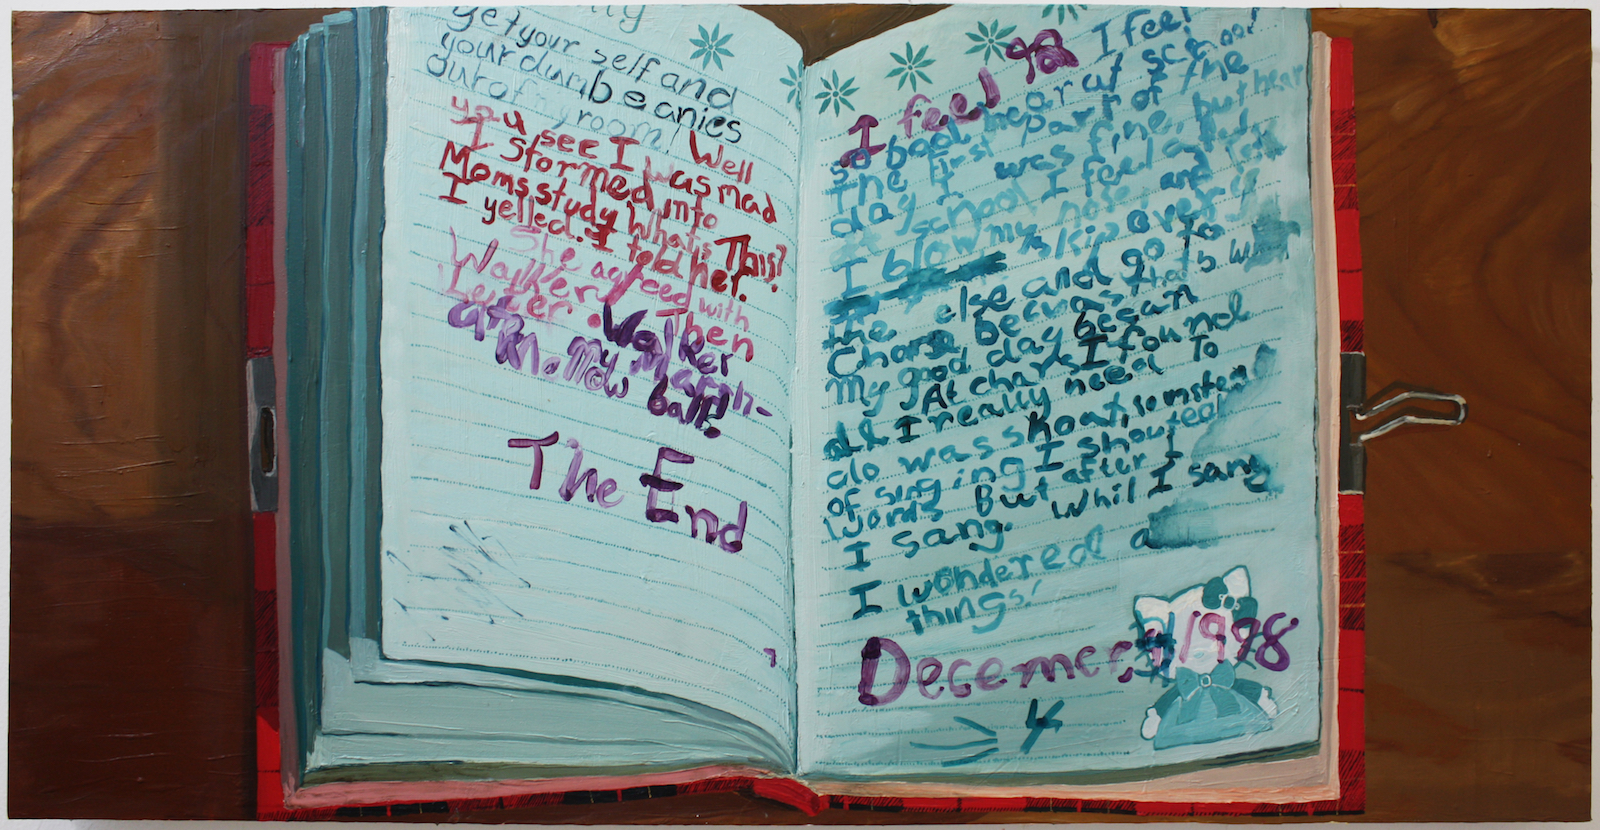 get your self and
your dumb beanies
out of my room! Well
you see I was mad
I stormed into
Moms study What is This?
I yelled. I told her.
She agreed with
Walker! Then
Later. Walker
ate my Marsh-
Mallow ball!
The End
I feel
I feel
so bad hear at school!
The first part of the
day I was fine, but hear
at school I feel
I blow my nose and
skip over
the else and go to
Chorse becuas that's
My good day began
At chars I found
all I really need To
do was shout, somsten
of singing I shouted
words But after I
I sang. Whil I sang
I wondered a
things!
Decemer 1998